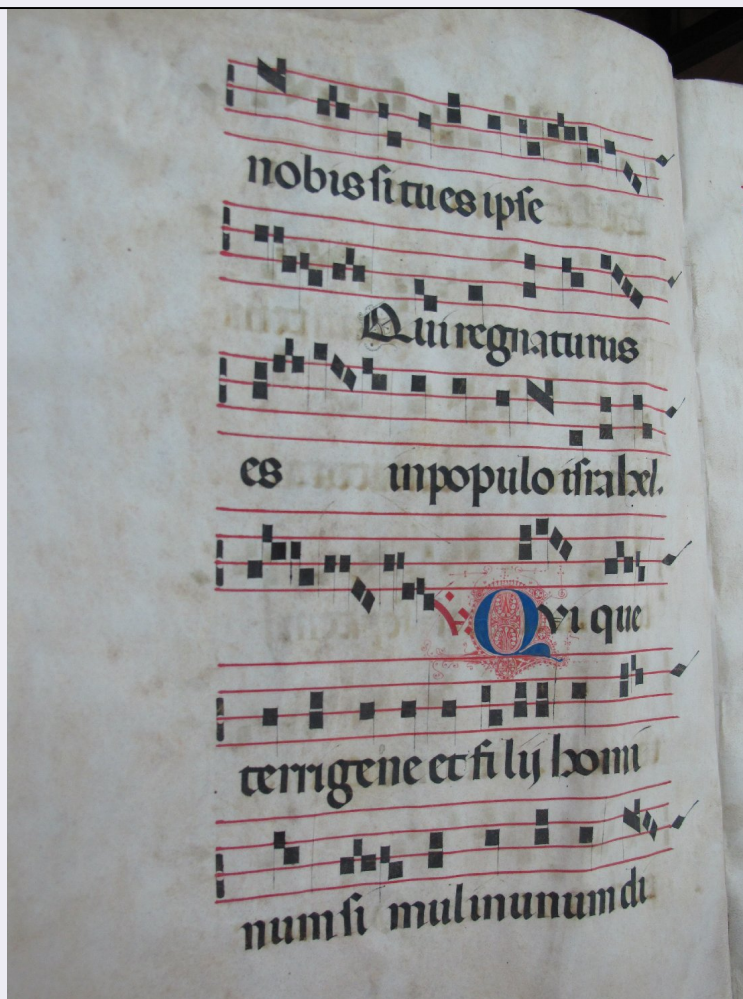 nobis si tu es ipse
Qui regnaturus
es in populo israhel.
℣. Qui que
terrigene et filij homi
num si mul in unum di